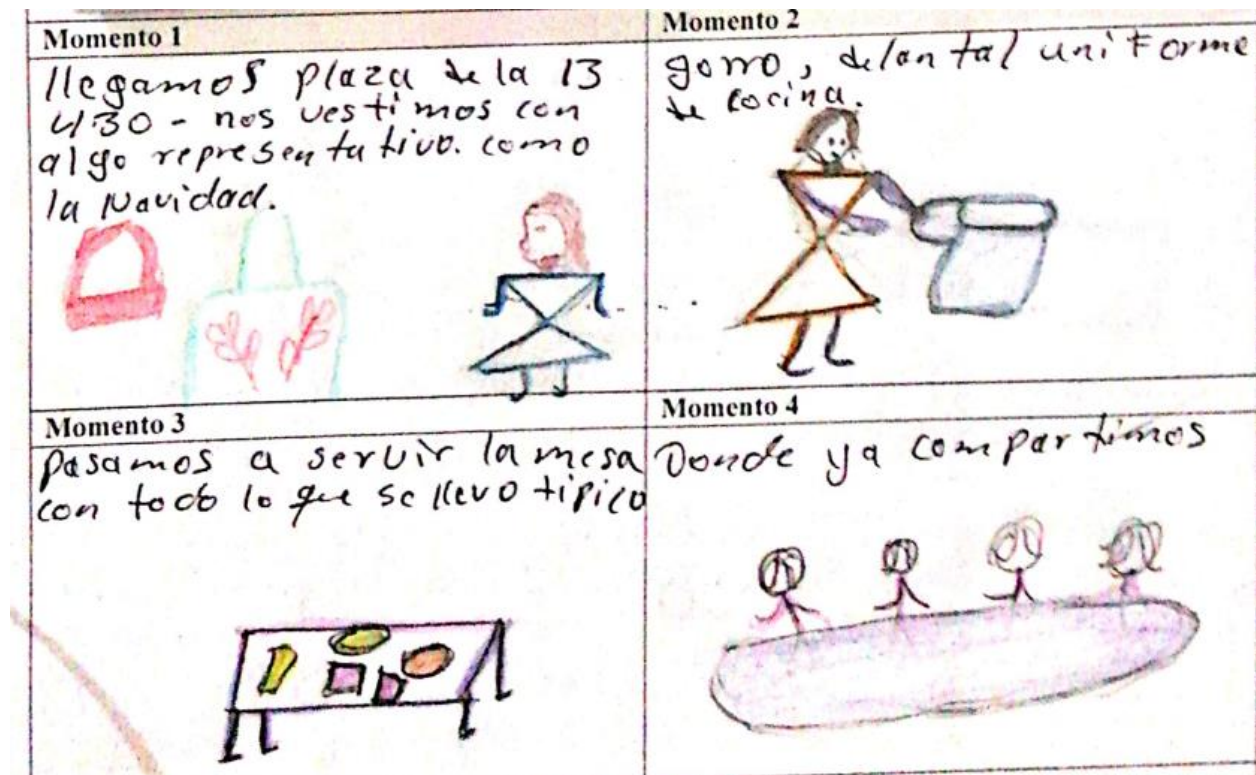 Momento 1
llegamos plaza de la 13
4:30 - nos vestimos con
algo representativo. como
la Navidad.
Momento 2
gorro, delantal uniforme
de cocina.
Momento 3
pasamos a servir la mesa
con todo lo que se llevo tipico
Momento 4
Donde ya compartimos